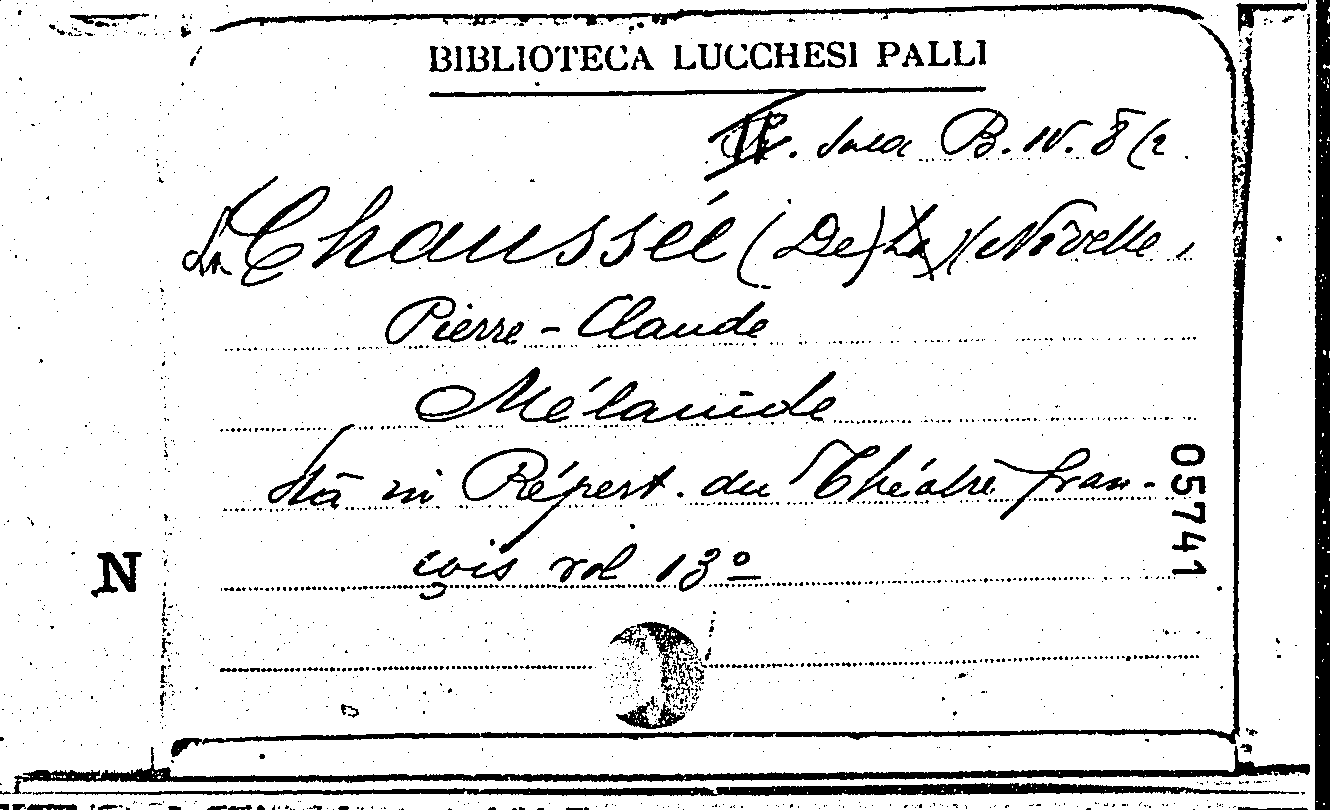 BIBLIOTECA LUCCHESI PALLI
Sala B. IV. 8 (2
La Chaussée (De) La (Nivelle,
Pierre-Claude
Mélanide
Sta in Répert. du Théâtre fran-
çois vol 13º
05741
N